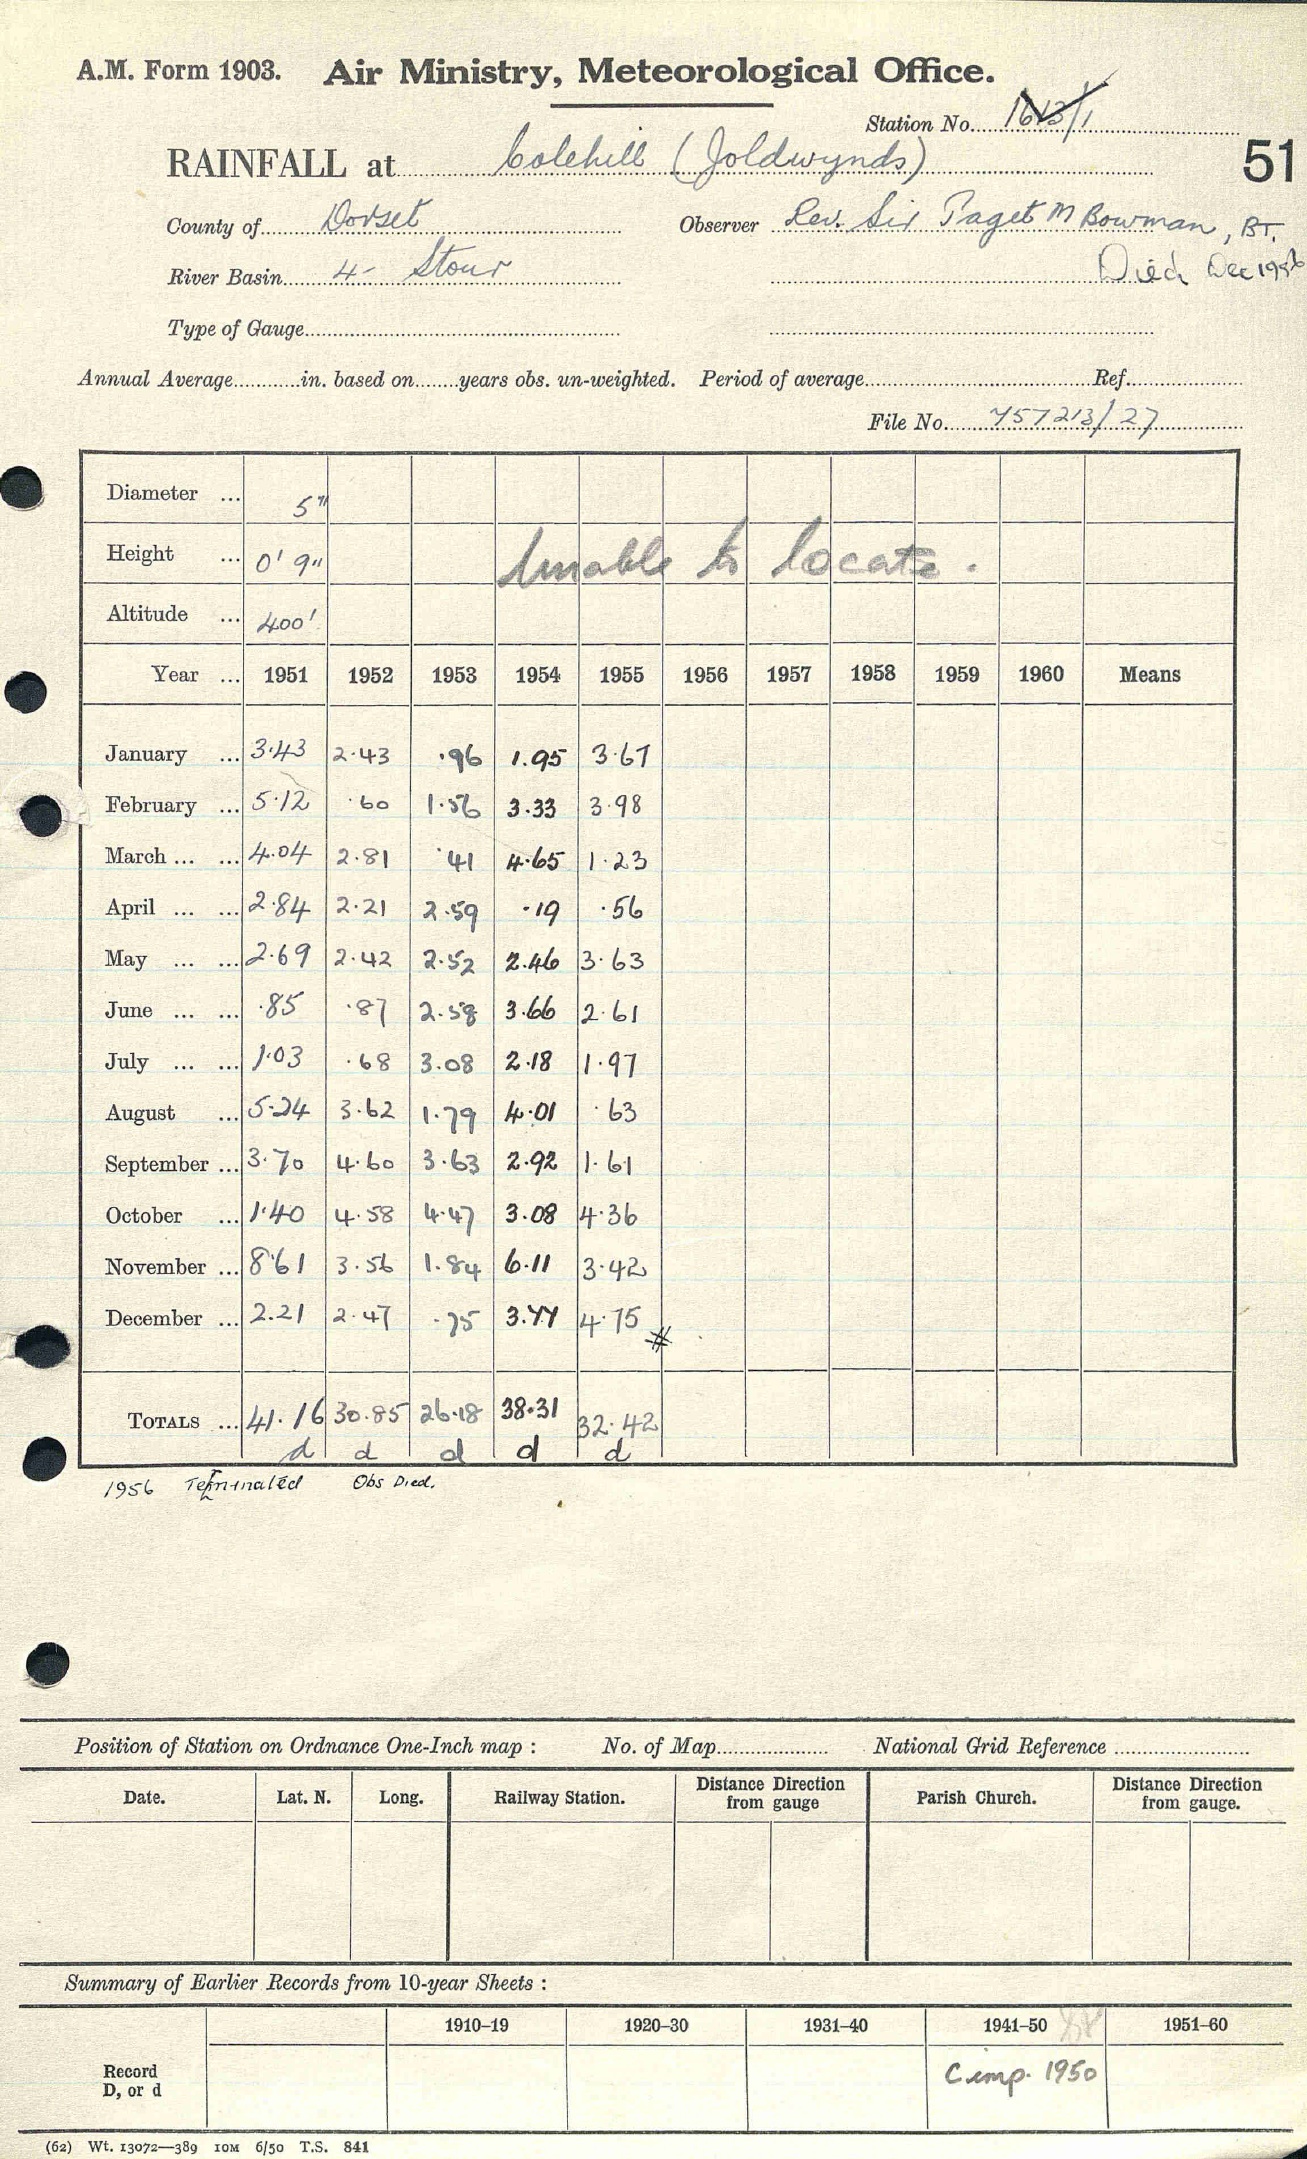 A.M. Form 1903. Air Ministry, Meteorological Office.
Station No. 1613/1
RAINFALL at Colehill (Joldwynds)
51
County of Dorset Observer Rev. Sir Paget M Bowman, BT.
River Basin 4- Stour Died Dec 1956
Type of Gauge
Annual Average in. based on years obs. un-weighted. Period of average Ref.
File No. 757213/27
Diameter ... 5"
Height ... 0' 9" Unable to locate.
Altitude ... 400'
Year ... 1951 1952 1953 1954 1955 1956 1957 1958 1959 1960 Means
January ... 3.43 2.43 .96 1.95 3.67
February ... 5.12 .60 1.56 3.33 3.98
March ... ... 4.04 2.81 .41 4.65 1.23
April ... ... 2.84 2.21 2.59 .19 .56
May ... ... 2.69 2.42 2.52 2.46 3.63
June ... ... .85 .87 2.58 3.66 2.61
July ... ... 1.03 .68 3.08 2.18 1.97
August ... 5.24 3.62 1.79 4.01 .63
September ... 3.70 4.60 3.63 2.92 1.61
October ... 1.40 4.58 4.47 3.08 4.36
November ... 8.61 3.56 1.84 6.11 3.42
December ... 2.21 2.47 .75 3.77 4.75 #
TOTALS ... 41.16 30.85 26.18 38.31 32.42
d d d d d
1956 Terminated Obs Died.
Position of Station on Ordnance One-Inch map : No. of Map National Grid Reference
Date. Lat. N. Long. Railway Station. Distance Direction from gauge Parish Church. Distance Direction from gauge.
Summary of Earlier Records from 10-year Sheets :
1910–19 1920–30 1931–40 1941–50 1951–60
Record
D, or d
C imp. 1950
(62) Wt. 13072—389 10M 6/50 T.S. 841